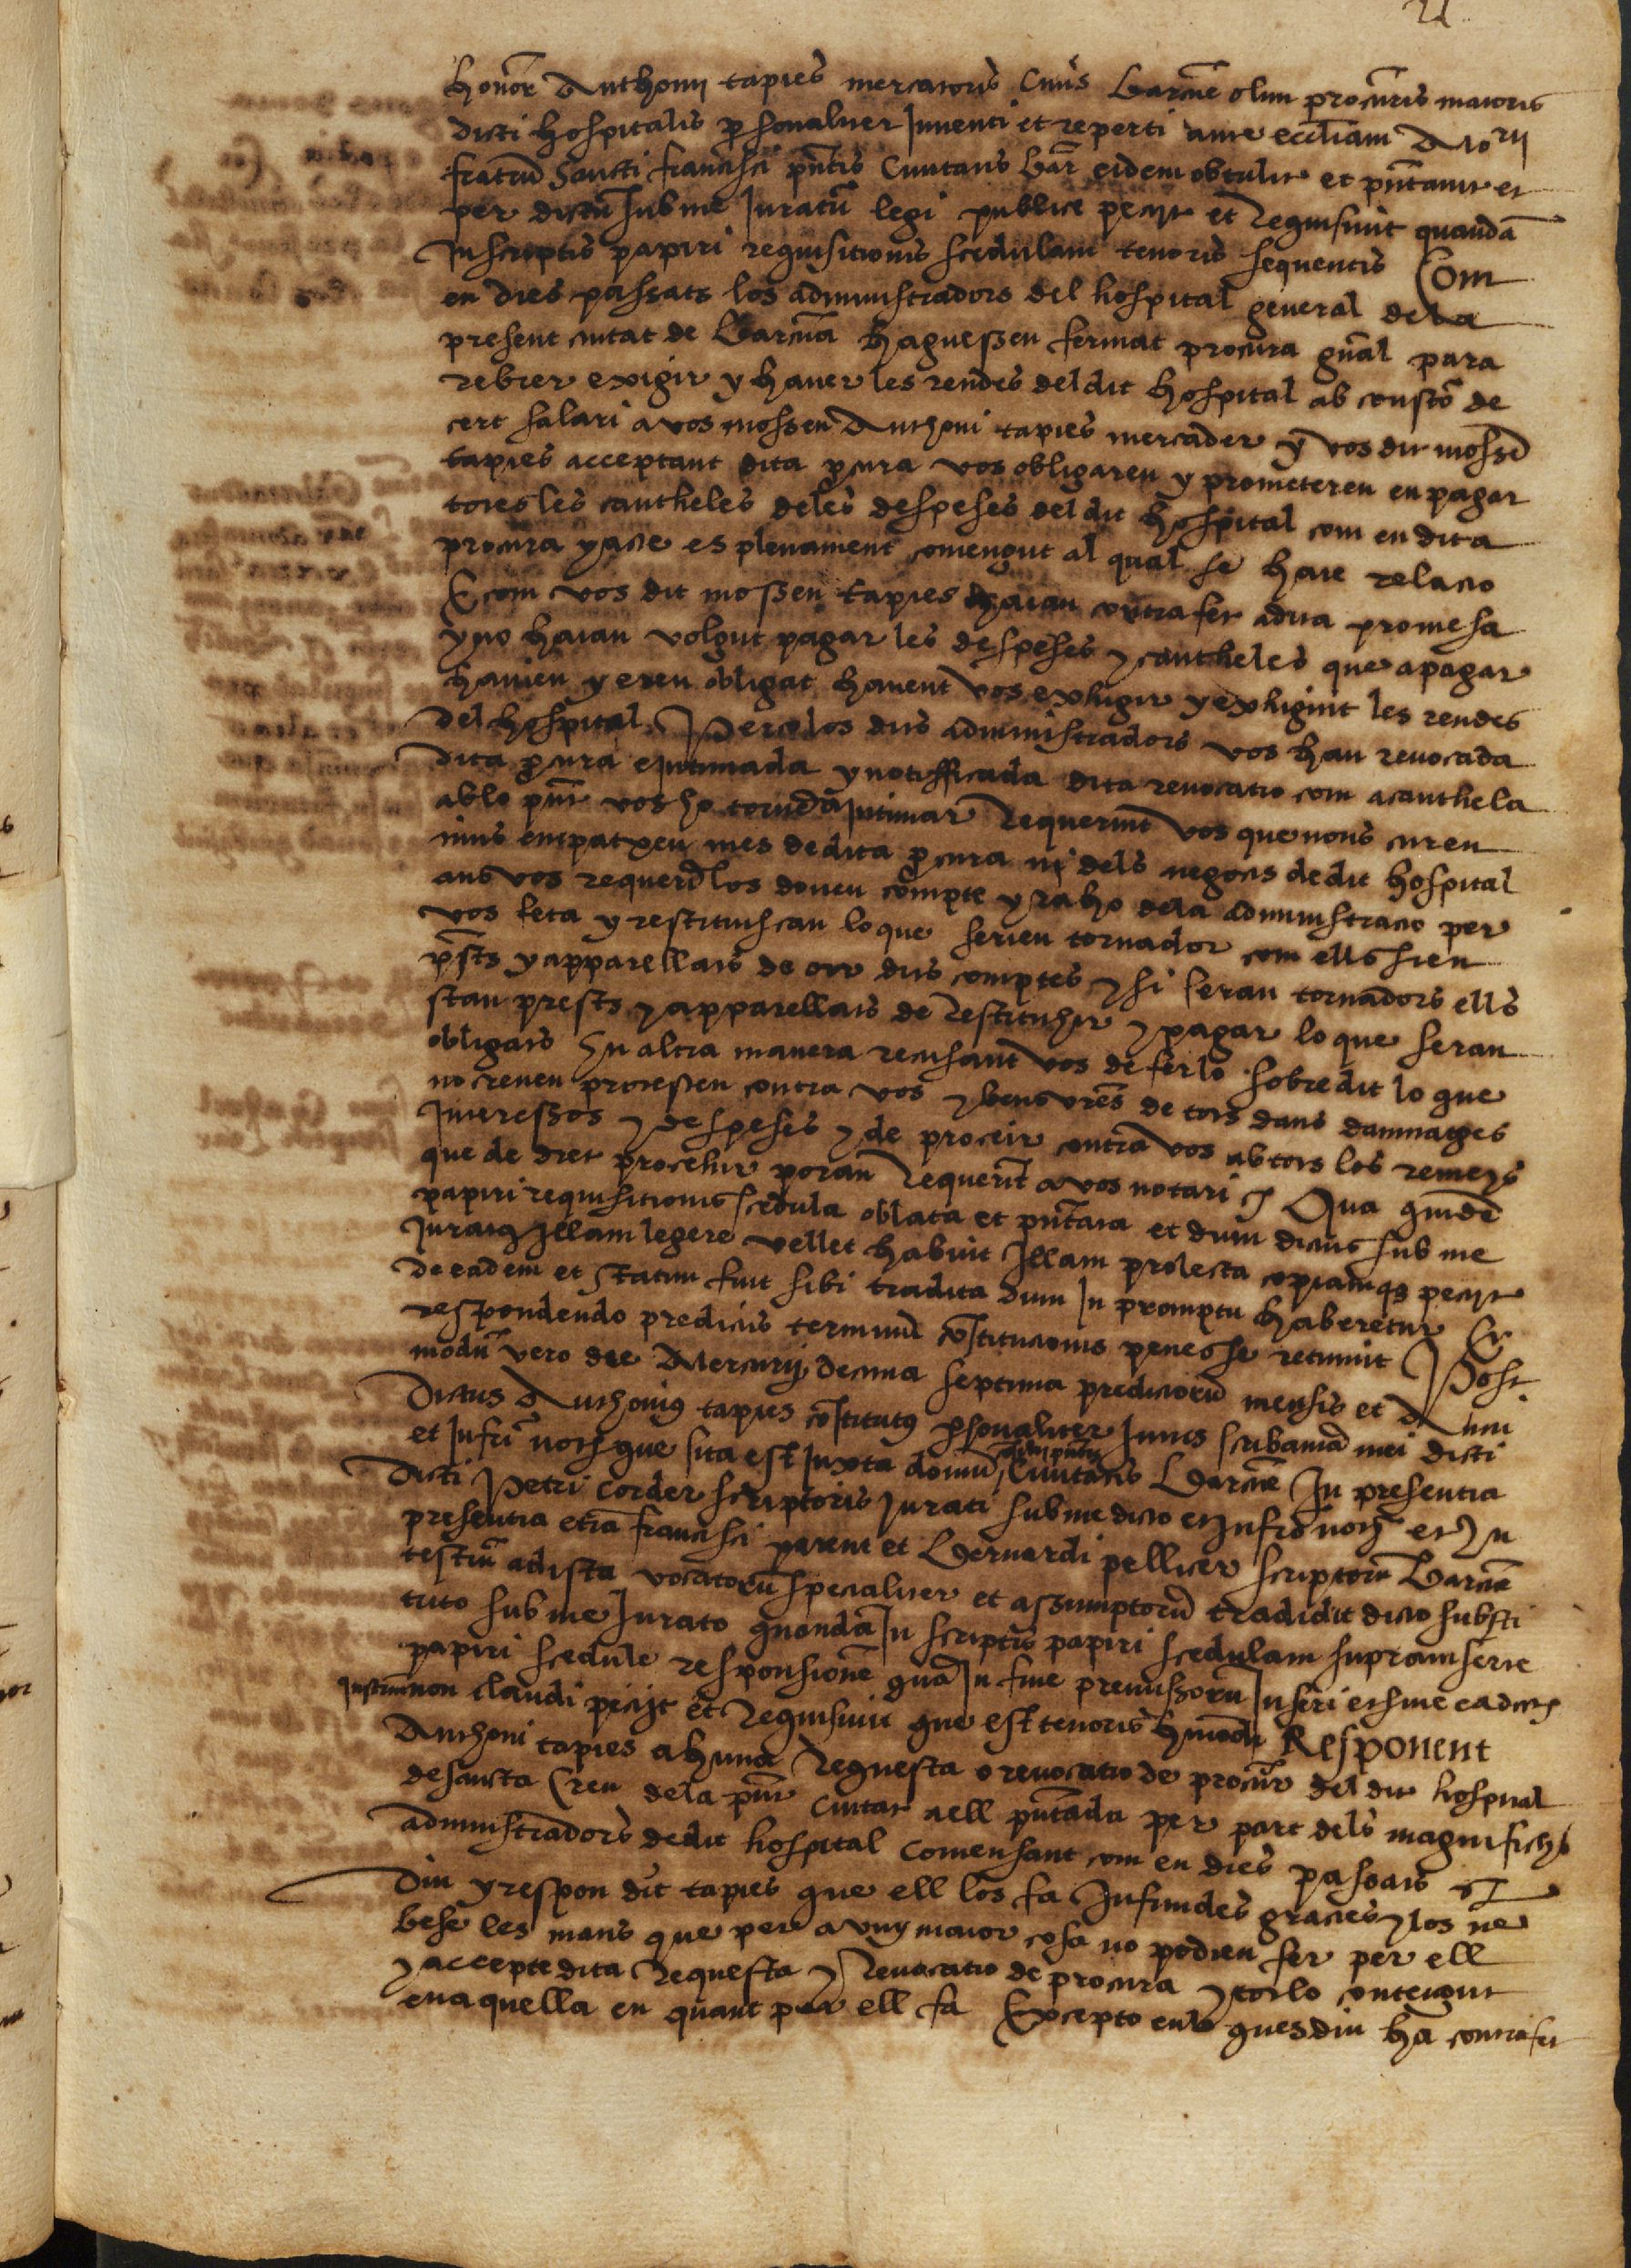 honor Anthonij tapies mercatoris Civis Barcne olim procuris maioris
dicti hospitalis personaliter Inventi et reperti ante eccliam
fratrum Sancti francisci pntis Civitatis Bar eidem obtulit et pntavit et
per dictum sub me Juratum legi publice peciit et Requisivit quandam
In scriptis papiri requisitionis scedulam tenoris sequentis Com
en dies passats los administradors del hospital general dela
present ciutat de Barcna haguessen fermat procura gnal para
rebrer exigir y haver les rendes del dit hospital ab constitucio de
cert salari a vos mossen Anthoni tapies mercader y vos dit mossen
tapies acceptant dita procura vos obligaren y prometeren en pagar
totes les cautheles deles despeses del dit hospital com en dita
procura y acte es plenament contengut al qual se haie relacio
E com vos dit mossen tapies haian contrafet a dita promesa
y no haian volgut pagar les despeses y cautheles que a pagar
havien y eren obligat havent vos exhigir y exhigint les rendes
del hospital Perço los dits administradors vos han revocada
dita procura e Intimada y notifficada dita revocatio com a cauthela
ab lo pnt vos ho tornen a Intimar Requerint vos que nous curen
nius empatxen mes de dita procura ni dels negocis de dit hospital
ans vos requeren los doneu compte y raho dela administracio per
vos feta y restituiscan lo que serien tornador com ells sien
prests y apparellats de oir dits comptes y si seran tornadors ells
stan prests y apparellats de Restituhir y pagar lo que seran
obligats En altra manera recusant vos de fer lo sobredit lo que
no creuen protesten contra vos y bens vres de tots dans damnatges
Interessos y despeses y de proceir contra vos ab tots los remeys
que de dret procehir poran Requerint a vos notari etc Qua quidem
papiri requisitionis scedula oblata et pntata et dum dictus sub me
Juratus Illam legere vellet habuit Illam pro lecta copiamque peciit
de eadem et statim fuit sibi tradita dum In promptu haberetur Et
respondendo predictis terminum constitucionis penes se retinuit Post
modum vero die Mercurij decima septima predictorum mensis et Anni
Dictus Anthonius tapies constitutus personaliter Intus scribaniam mei dicti
et Infri notij que sita est Juxta domum Civitatis Barcne In presentia
Dicti Petri Corder scriptoris Jurati sub me dicto et Infro notio et In
presentia etiam francisci parent et Bernardi pellicer scriptorum Barcne
testium ad ista vocatorum specialiter et assumptorum tradidit dicto substi
tuto sub me Jurato quandam In scriptis papiri scedulam suprainserte
papiri scedule responsionem quam In fine premissorum Inseri et sine ea dictum
Instrum non claudi peciit et Requisivit que est tenoris hmodi Responent
Anthoni tapies a huna Requesta o revocatio de procur del dit hospital
de sancta Creu dela pnt Ciutat a ell pntada per part dels magnifichs
administradors de dit hospital Comensant com en dies passats etc
Diu y respon dit tapies que ell los fa Infinides gracies y los ne
bese les mans que per a vuy maior cosa no podien fer per ell
y accepte dita Requesta y Revocatio de procura y tot lo contengut
en aquella en quant per ell fa Excepto en lo ques diu ha contrafet